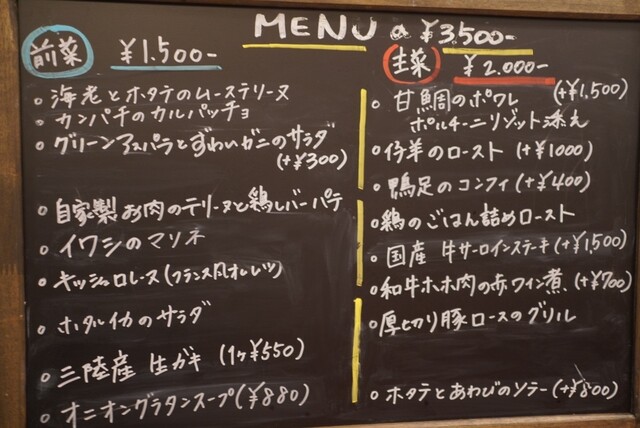 MENU a ¥3500-
前菜 ¥1.500-
・海老とホタテのムーステリーヌ
・カンパチのカルパッチョ
・グリーンアスパラとずわいガニのサラダ
(+¥300)
・自家製お肉のテリーヌと鶏レバーパテ
・イワシのマリネ
・キッシュロレーヌ(フランス風オムレツ)
・ホタルイカのサラダ
・三陸産 生ガキ (1ヶ¥550)
・オニオングラタンスープ(¥880)
主菜 ¥2.000-
・甘鯛のポワレ (+¥1,500)
ポルチーニリゾット添え
・仔羊のロースト (+¥1000)
・鴨足のコンフィ (+¥400)
・鶏のごはん詰めロースト
・国産 牛サーロインステーキ(+¥1,500)
・和牛ホホ肉の赤ワイン煮 (+¥700)
・厚切り豚ロースのグリル
・ホタテとあわびのソテー (+¥800)